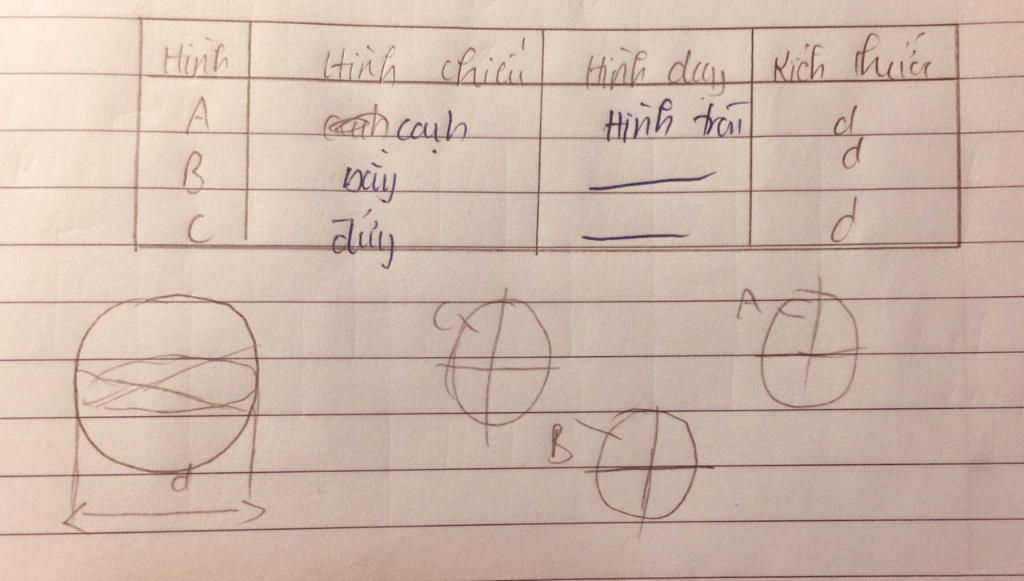 Hình Hình chiếu Hình dạng Kích thước
A cạnh Hình tròn d
B bằng d
C đứng d
C A
B
d